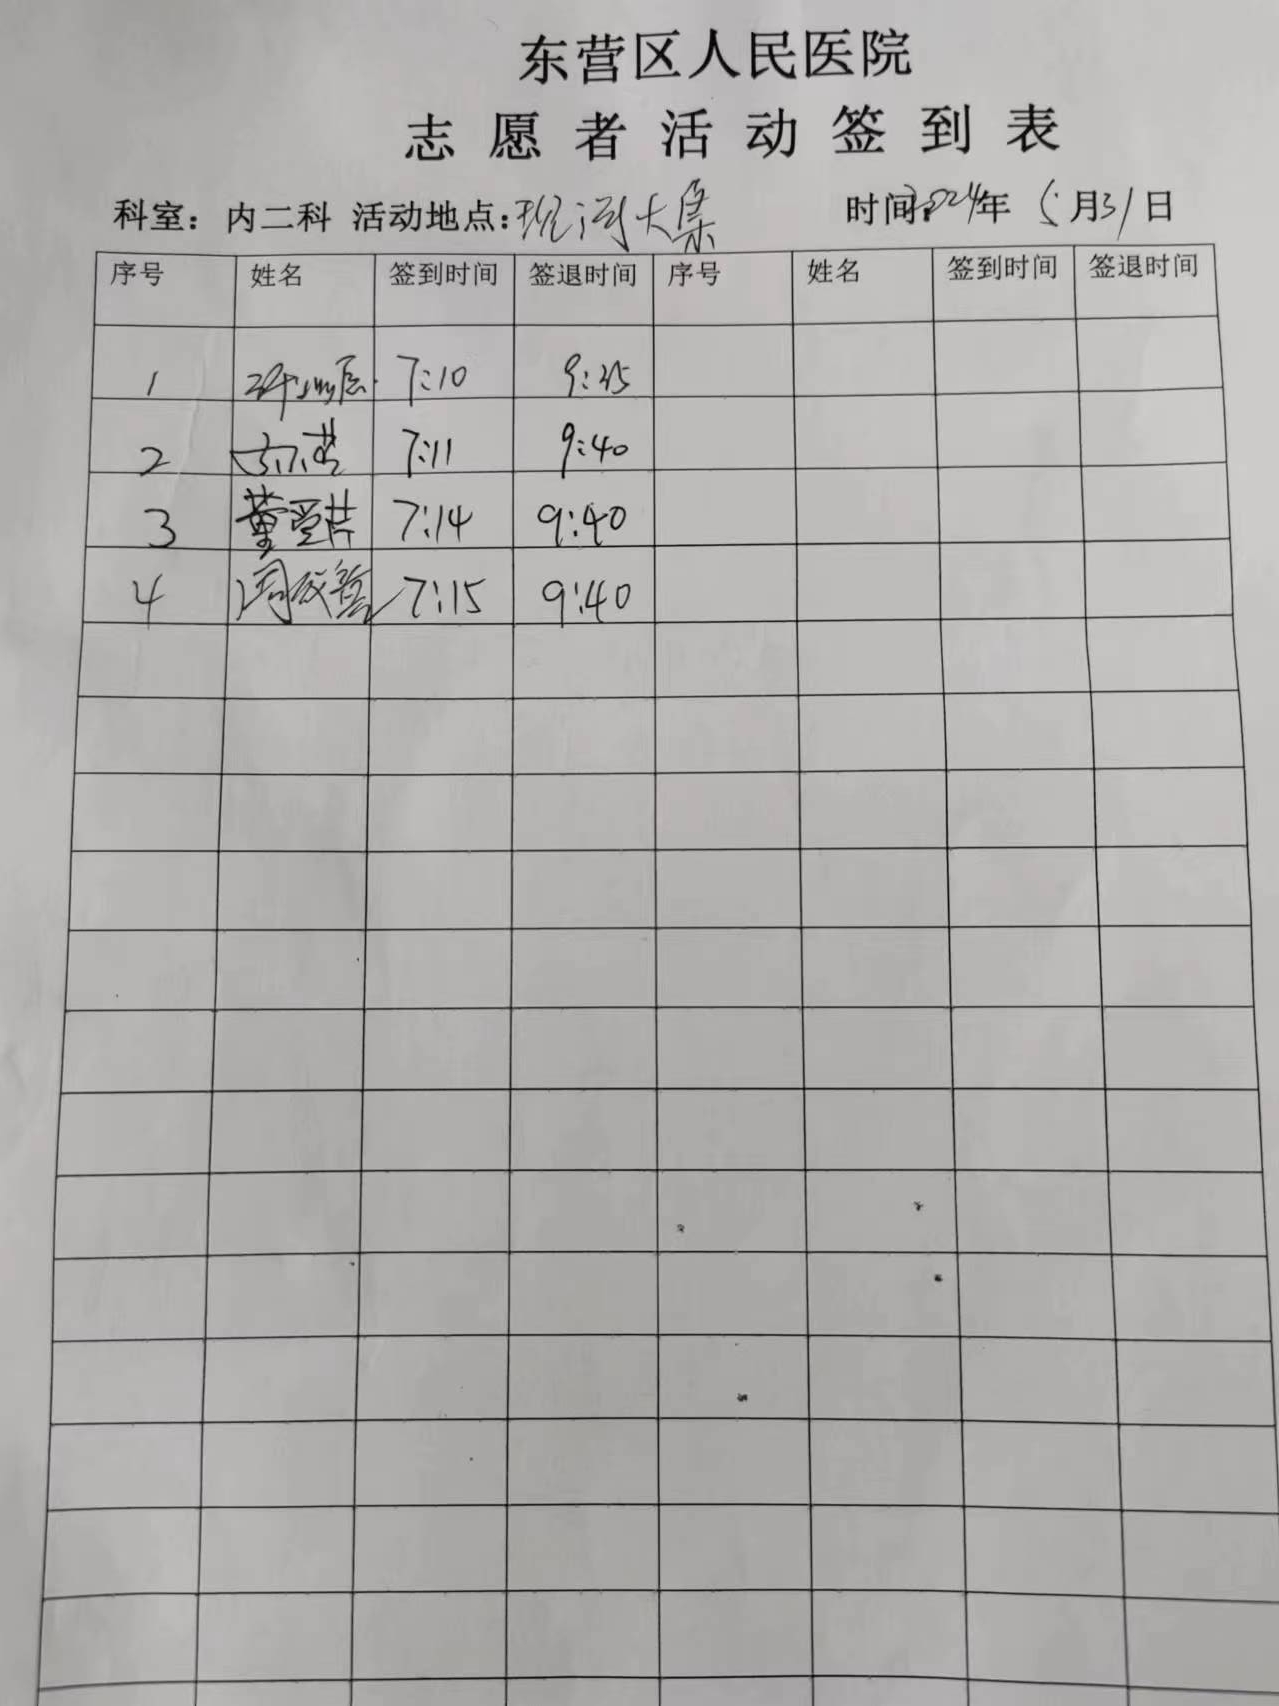 东营区人民医院
志愿者活动签到表
科室：内二科 活动地点：现河大集 时间：2024年 5月31日
序号 姓名 签到时间 签退时间 序号 姓名 签到时间 签退时间
1 7:10 9:35
2 7:11 9:40
3 董爱芹 7:14 9:40
4 7:15 9:40